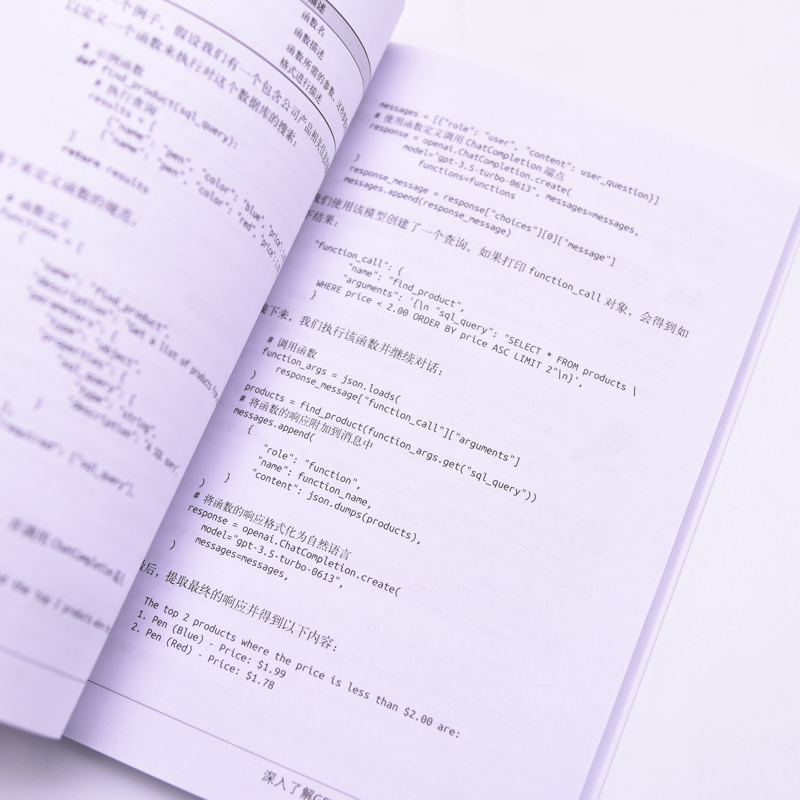 描述
函数名
函数描述
函数所需的参数,
格式进行描述
一个例子,假设我们有一个包含公司产品相关
以定义一个函数来执行对这个数据库的搜索:
# 示例函数
def find_product(sql_query):
# 执行查询
results = [
{"name": "pen", "color": "blue", "price
{"name": "pen", "color": "red", "price
]
return results
下来定义函数的规范:
# 函数定义
functions = [
{
"name": "find_product",
"description": "Get a list of products
"parameters": {
"type": "object",
"properties": {
"sql_query": {
"type": "string",
"description": "A SQL
"required": ["sql_query"],
ChatCompletion
messages = [{"role": "user", "content": user_question}]
# 使用函数定义调用 ChatCompletion 端点
response = openai.ChatCompletion.create(
model="gpt-3.5-turbo-0613", messages=messages,
functions=functions
)
response_message = response["choices"][0]["message"]
messages.append(response_message)
我们使用该模型创建了一个查询。如果打印 function_call 对象,会得到如
下结果:
"function_call": {
"name": "find_product",
"arguments": '{\n "sql_query": "SELECT * FROM products \
WHERE price < 2.00 ORDER BY price ASC LIMIT 2"\n}',
}
接下来,我们执行该函数并继续对话:
# 调用函数
function_args = json.loads(
response_message["function_call"]["arguments"]
)
products = find_product(function_args.get("sql_query"))
# 将函数的响应附加到消息中
messages.append(
{
"role": "function",
"name": function_name,
"content": json.dumps(products),
}
)
# 将函数的响应格式化为自然语言
response = openai.ChatCompletion.create(
model="gpt-3.5-turbo-0613",
messages=messages,
)
最后,提取最终的响应并得到以下内容:
The top 2 products where the price is less than $2.00 are:
1. Pen (Blue) - Price: $1.99
2. Pen (Red) - Price: $1.78
深入了解